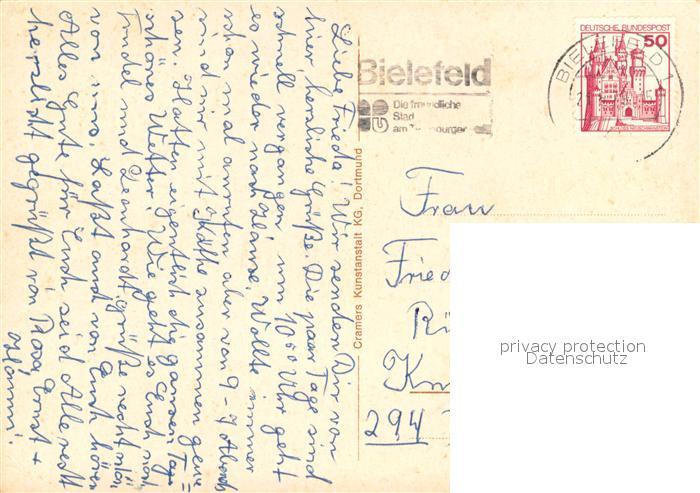 Liebe Frieda! Wir senden Dir von
hier herzliche Grüße. Die paar Tage sind
schnell vergangen um 10 00 Uhr geht
es wieder nach Hause. Wollte immer
schon mal anrufen aber von 9-7 Abends
sind wir mit Käthe zusammen gewe=
sen. Hatten eigentlich die ganzen Tage
schönes Wetter. Wie geht es Euch
und Leonhardt, grüße recht
von uns. Laßt auch von Euch hören
Alles Gute für Euch seid Alle recht
herzlichst gegrüßt von Rosa, Ernst +
Bielefeld
Die freundliche
Stadt
am
DEUTSCHE BUNDESPOST
50
BIELEFELD 1
Cramers Kunstanstalt KG, Dortmund
Frau
Fried
Rü
294
privacy protection
Datenschutz